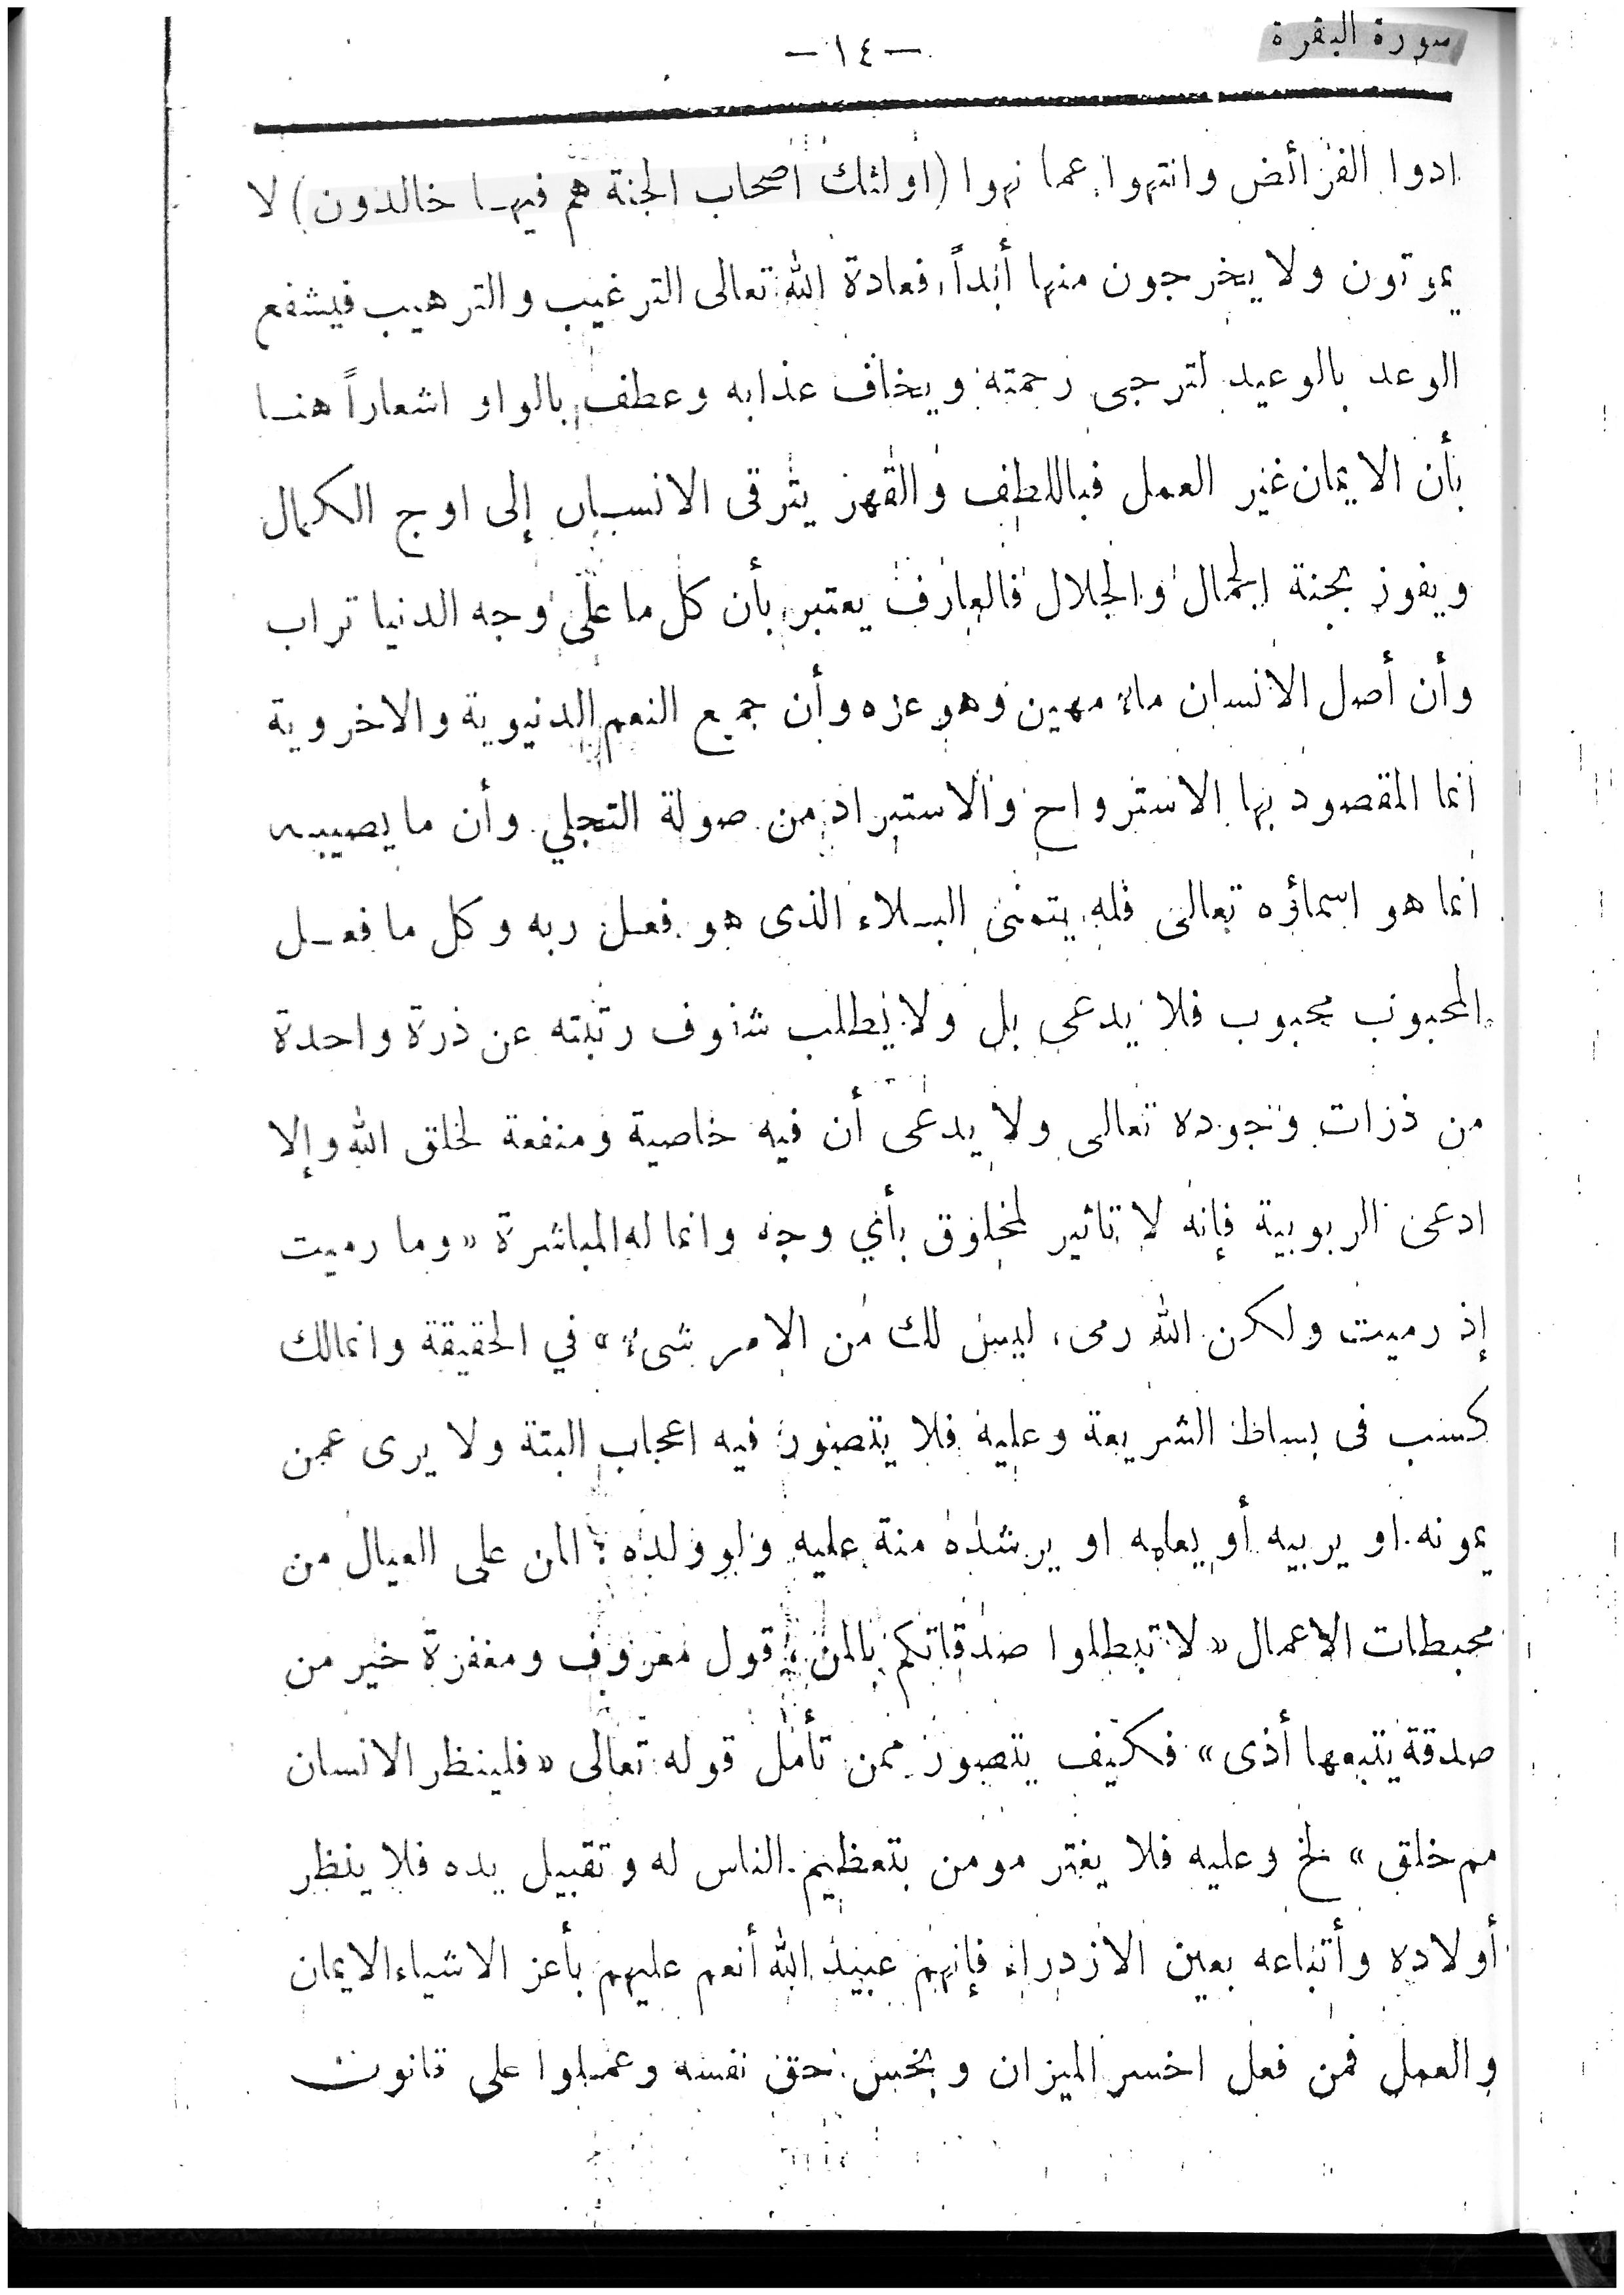 سورة البقرة
— ١٤ —
ادوا الفرائض وانتهوا عما نهوا (اولئك اصحاب الجنة هم فيها خالدون) لا
يموتون ولا يخرجون منها أبداً، فعادة الله تعالى الترغيب والترهيب فيشفع
الوعد بالوعيد لترجى رحمته ويخاف عذابه وعطف بالواو اشعاراً هنا
بأن الايمان غير العمل فباللطف والقهر يترقى الانسان إلى اوج الكمال
ويفوز بجنة الجمال والجلال فالعارف يعتبر بأن كل ما على وجه الدنيا تراب
وأن أصل الانسان ماء مهين وهو عزه وأن جميع النعم الدنيوية والاخروية
انما المقصود بها الاسترواح والاستبراد من صولة التجلي وأن ما يصيبه
انما هو اسماؤه تعالى فله يتمنى البلاء الذى هو فعل ربه وكل ما فعل
المحبوب محبوب فلا يدعى بل ولا يطلب شفوف رتبته عن ذرة واحدة
من ذرات وجوده تعالى ولا يدعى أن فيه خاصية ومنفعة لخلق الله وإلا
ادعى الربوبية فإنه لا تاثير لمخلوق بأي وجه وانما له المباشرة «وما رميت
إذ رميت ولكن الله رمى، ليس لك من الامر شىء» في الحقيقة وانما لك
كسب فى بساط الشريعة وعليه فلا يتصور فيه اعجاب البتة ولا يرى عمن
يمونه او يربيه أو يعلمه او يرشده منة عليه ولو ولده: المن على العيال من
محبطات الاعمال «لا تبطلوا صدقاتكم بالمن، قول معروف ومغفرة خير من
صدقة يتبعها أذى» فكيف يتصور ممن تأمل قوله تعالى «فلينظر الانسان
مم خلق» لخ وعليه فلا يغتر مومن بتعظيم الناس له وتقبيل يده فلا ينظر
أولاده وأتباعه بعين الازدراء فإنهم عبيد الله أنعم عليهم بأعز الاشياء الايمان
والعمل فمن فعل اخسر الميزان وبخس حق نفسه وعملوا على قانون